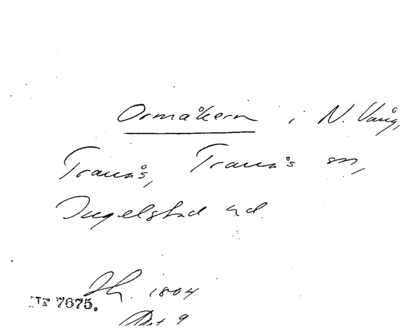 Ormåkern i N. Vång,
Tranås, Tranås sn,
Ingelstad hd.
1804
Nr 7675.